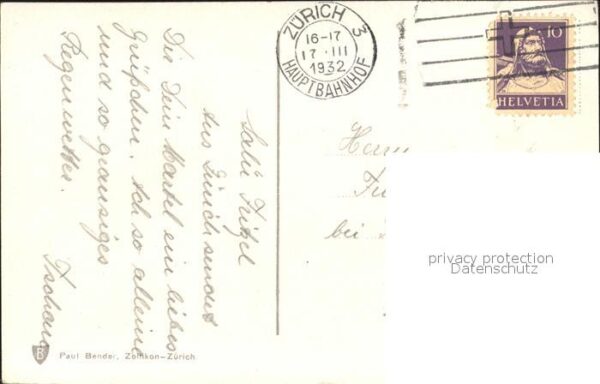 ZÜRICH 3
16-17
17·III
1932
HAUPTBAHNHOF
10
HELVETIA
Salü Fritzel
Aus Zürich sendet
Dir Dein Martel ein liebes
Grüßchen. Ich so alleine
und so grausiges
Regenwetter.
Herrn
bei
privacy protection
Datenschutz
B
Paul Bender, Zollikon-Zürich